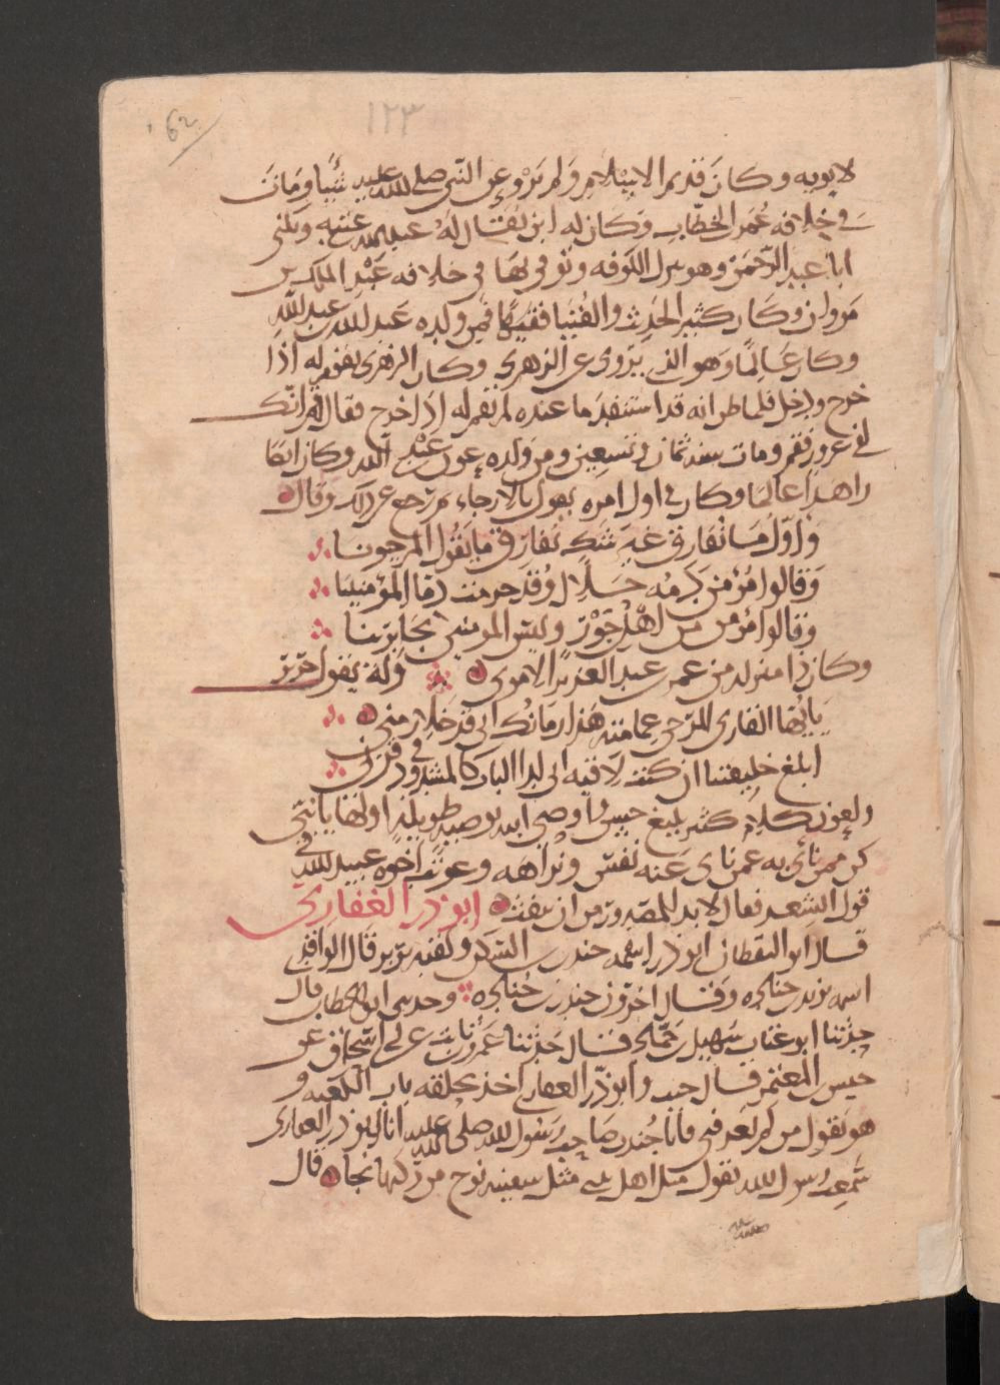 62
١٢٣
لابويه وكان قديم الاسلام ولم يرو عن النبي صلى الله عليه شيا ومات
في خلافه عمر بن الخطاب وكان له ابن يقال له عبد الله بن عتبه ويكنى
ابا عبد الرحمن وهو نزل الكوفه وتوفي بها في خلافه عبد الملك بن
مروان وكان كثير الحديث والفتيا فقيها فمن ولده عبيد الله بن عبد الله
وكان عالما وهو الذي يروى عن الزهري وكان الزهري يقوم له اذا
خرج ودخل فلما ظن انه قد استنفد ما عنده لم يقم له اذا خرج فقال له انك
لفي عزوز فقم ومات سنه ثمان وتسعين ومن ولده عون بن عبد الله وكان ايضا
زاهدا عالما وكان في اول امره يقول بالارجاء ثم رجع عن ذلك وقال
واول ما نفارق غير شك نفارق ما يقول المرجونا
وقالوا مؤمن دمه حلال وقد حرمت دما المؤمنينا
وقالوا مؤمن من اهل جور وليس المومنين بجايرينا
وكان ذا منزله من عمر بن عبد العزيز الاموي وله يقول جرير
يا ايها القاري المرخى عمامته هذا زمانك اني قد خلا زمني
ابلغ خليفتنا ان كنت لاقيه اني لدا الباب كالمشدود في قرن
ولعون كلام كثير بليغ حسن واوصى ابنه بوصيه طويله اولها يا بني
كن ممن ناى به عمن ناى عنه نفس ونزاهه وعوتب اخوه عبيد الله في
قول الشعر فقال لا بد للمصدور من ان ينفث ابو ذر الغفاري
قال ابو اليقظان ابو ذر اسمه جندب بن السكن ولقبه برير قال الواقدي
اسمه برير بن جناده وقال اخرون جندب بن جناده وحدثني ابو الخطاب قال
حدثنا ابو عتاب سهيل بن حماد قال حدثنا عمرو بن ثابت عن ابي اسحاق عن
حبيش بن المعتمر قال جيت وابو ذر الغفاري اخذ بحلقه باب الكعبه و
هو يقول من لم يعرفني فانا جندب صاحب رسول الله صلى الله عليه انا ابو ذر الغفاري
سمعت رسول الله يقول مثل اهل بيتي مثل سفينه نوح من ركبها نجا قال